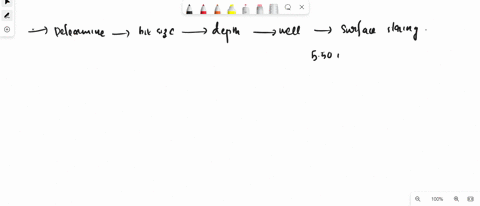 → Determine → bit size → depth → well → surface
5.50
100%